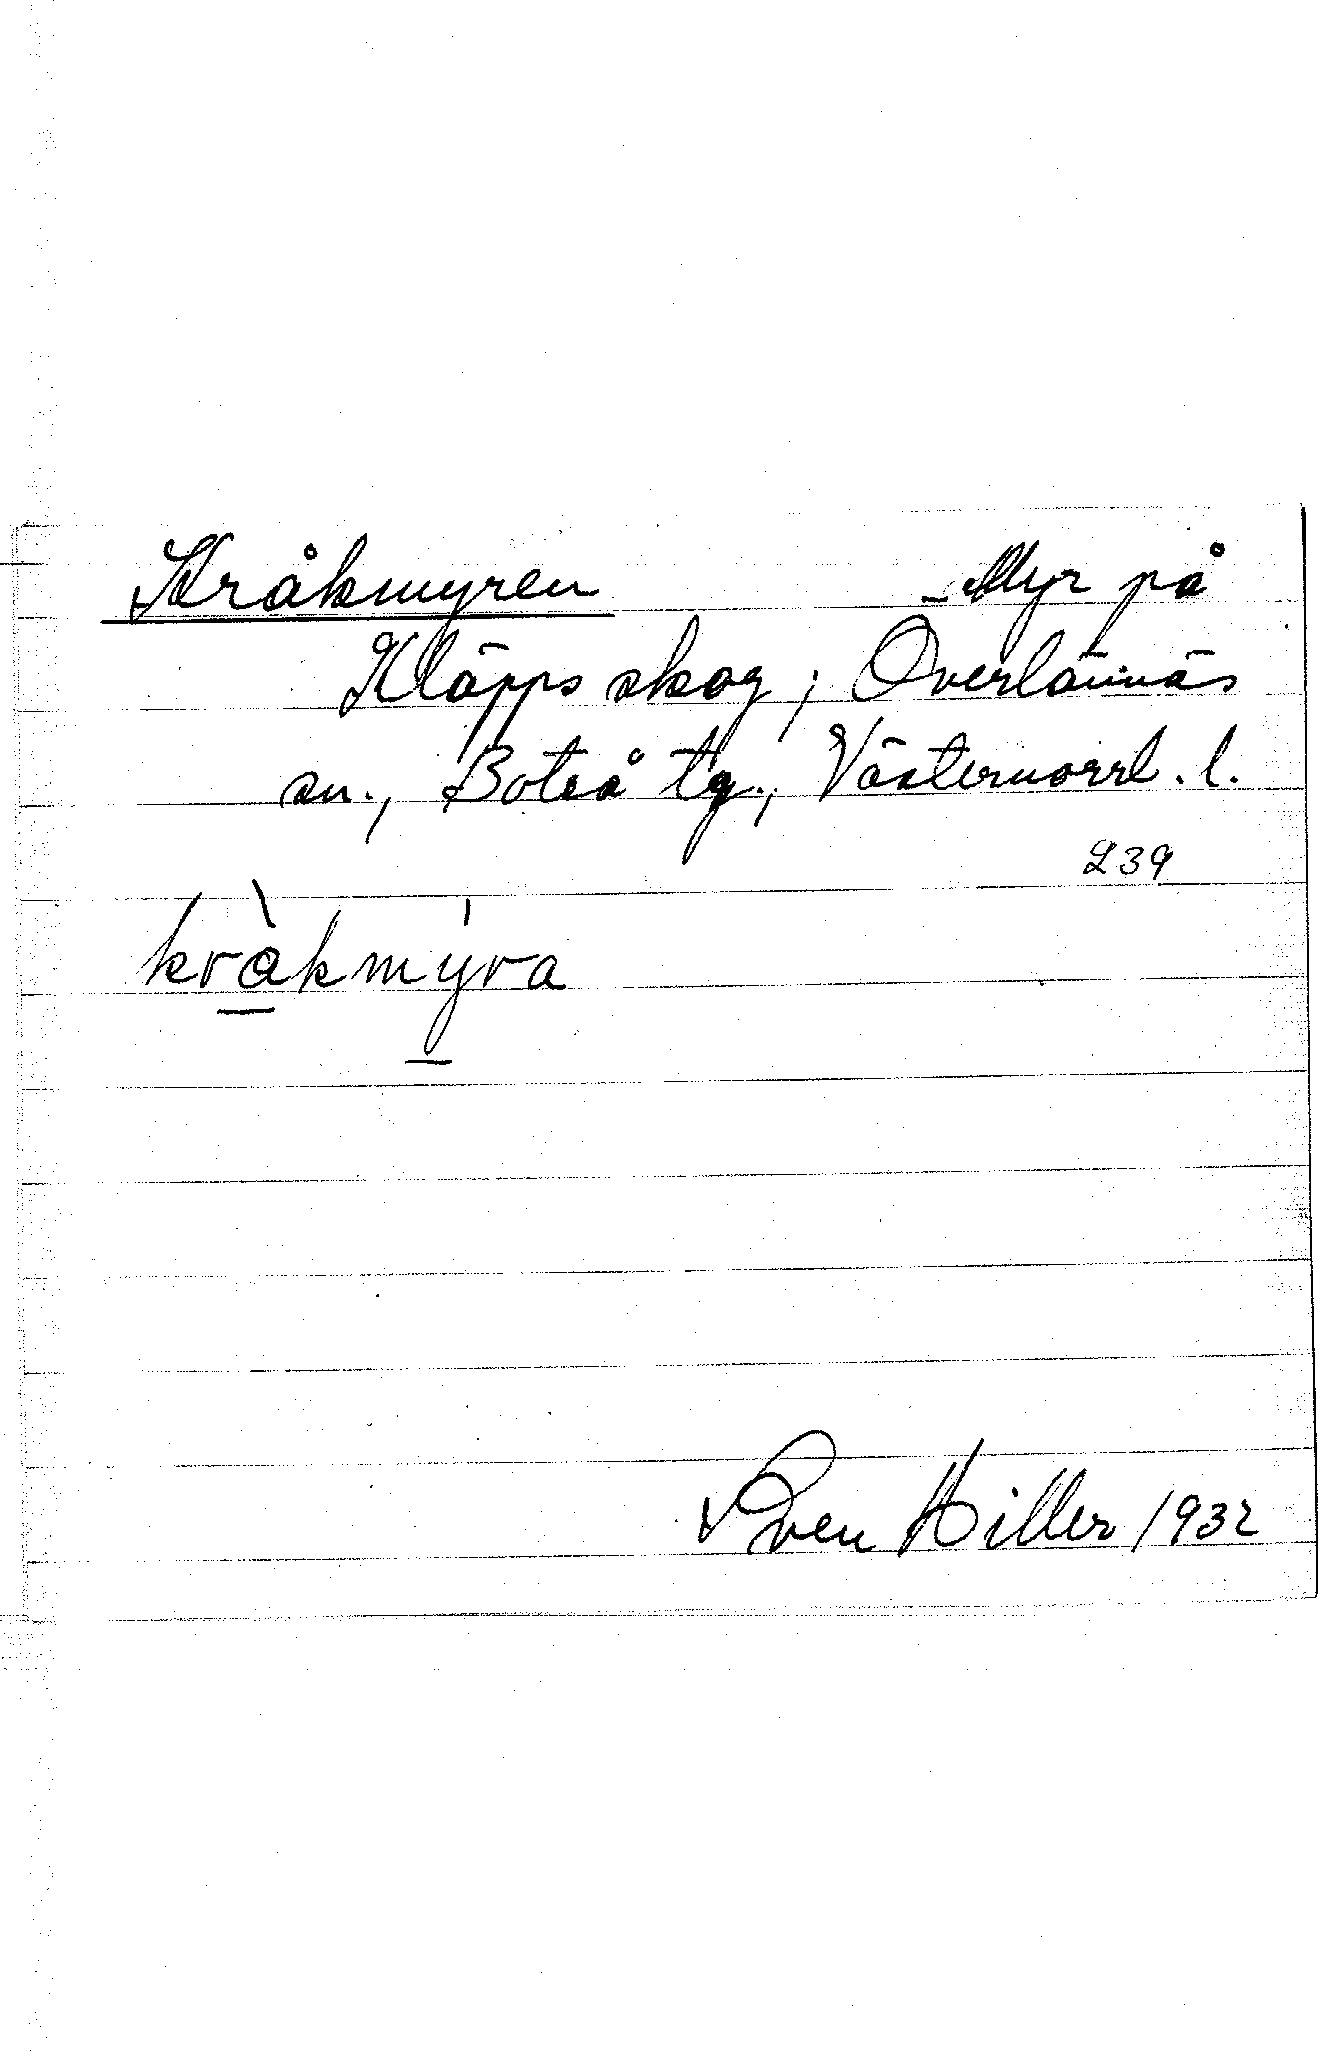 Kråkmyren Myr på
Kläpps skog; Överlännäs
sn., Boteå tg., Västernorrl. l.
239
kràkmýra
Sven Hiller 1932